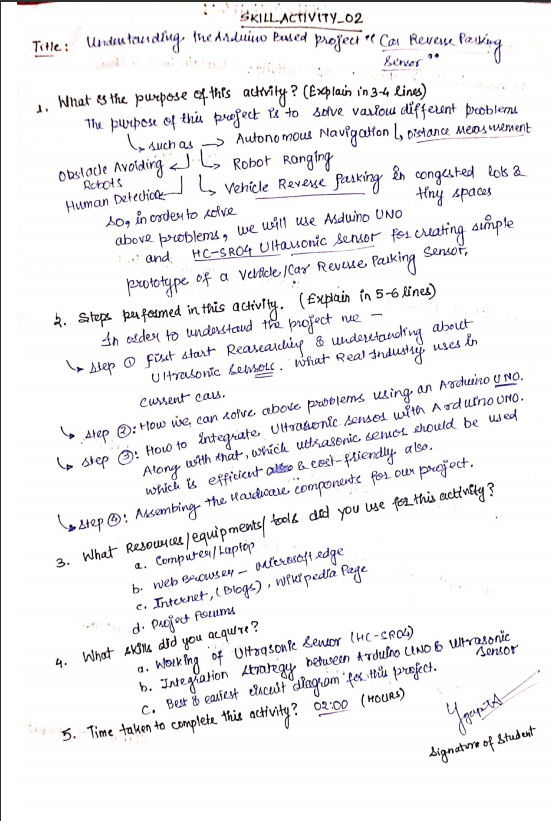 SKILL_ACTIVITY_02
Title: Understanding the Arduino Based project "Car Reverse Parking
Sensor"
1. What is the purpose of this activity? (Explain in 3-4 lines)
The purpose of this project is to solve various different problems
↳ such as → Autonomous Navigation ↳ Distance Measurement
Obstacle Avoiding ↲ ↳ Robot Ranging
Robots
Human Detection ↲ ↳ Vehicle Reverse Parking in congested lots &
tiny spaces
So, in order to solve
above problems, we will use Arduino UNO
and HC-SR04 Ultrasonic Sensor for creating simple
prototype of a Vehicle/Car Reverse Parking Sensor.
2. Steps performed in this activity. (Explain in 5-6 lines)
In order to understand the project we -
↳ step ① first start Reasearching & understanding about
Ultrasonic Sensors. What Real Industry uses in
current cars.
↳ step ②: How we, can solve above problems using an Arduino UNO.
↳ step ③: How to integrate Ultrasonic sensor with Arduino UNO.
Along with that, which ultrasonic sensor should be used
which is efficient & cost-friendly also.
↳ step ④: Assembing the Hardware components for our project.
3. What Resources/equipments/tools did you use for this activity?
a. Computer/Laptop
b. Web Browser - Microsoft edge
c. Internet, (Blogs), Wikipedia Page
d. Project Forums
4. What skills did you acquire?
a. Working of Ultrasonic Sensor (HC-SR04)
b. Integration strategy between Arduino UNO & Ultrasonic
Sensor
c. Best & easiest circuit diagram for this project.
5. Time taken to complete this activity? 02:00 (HOURS)
Signature of Student